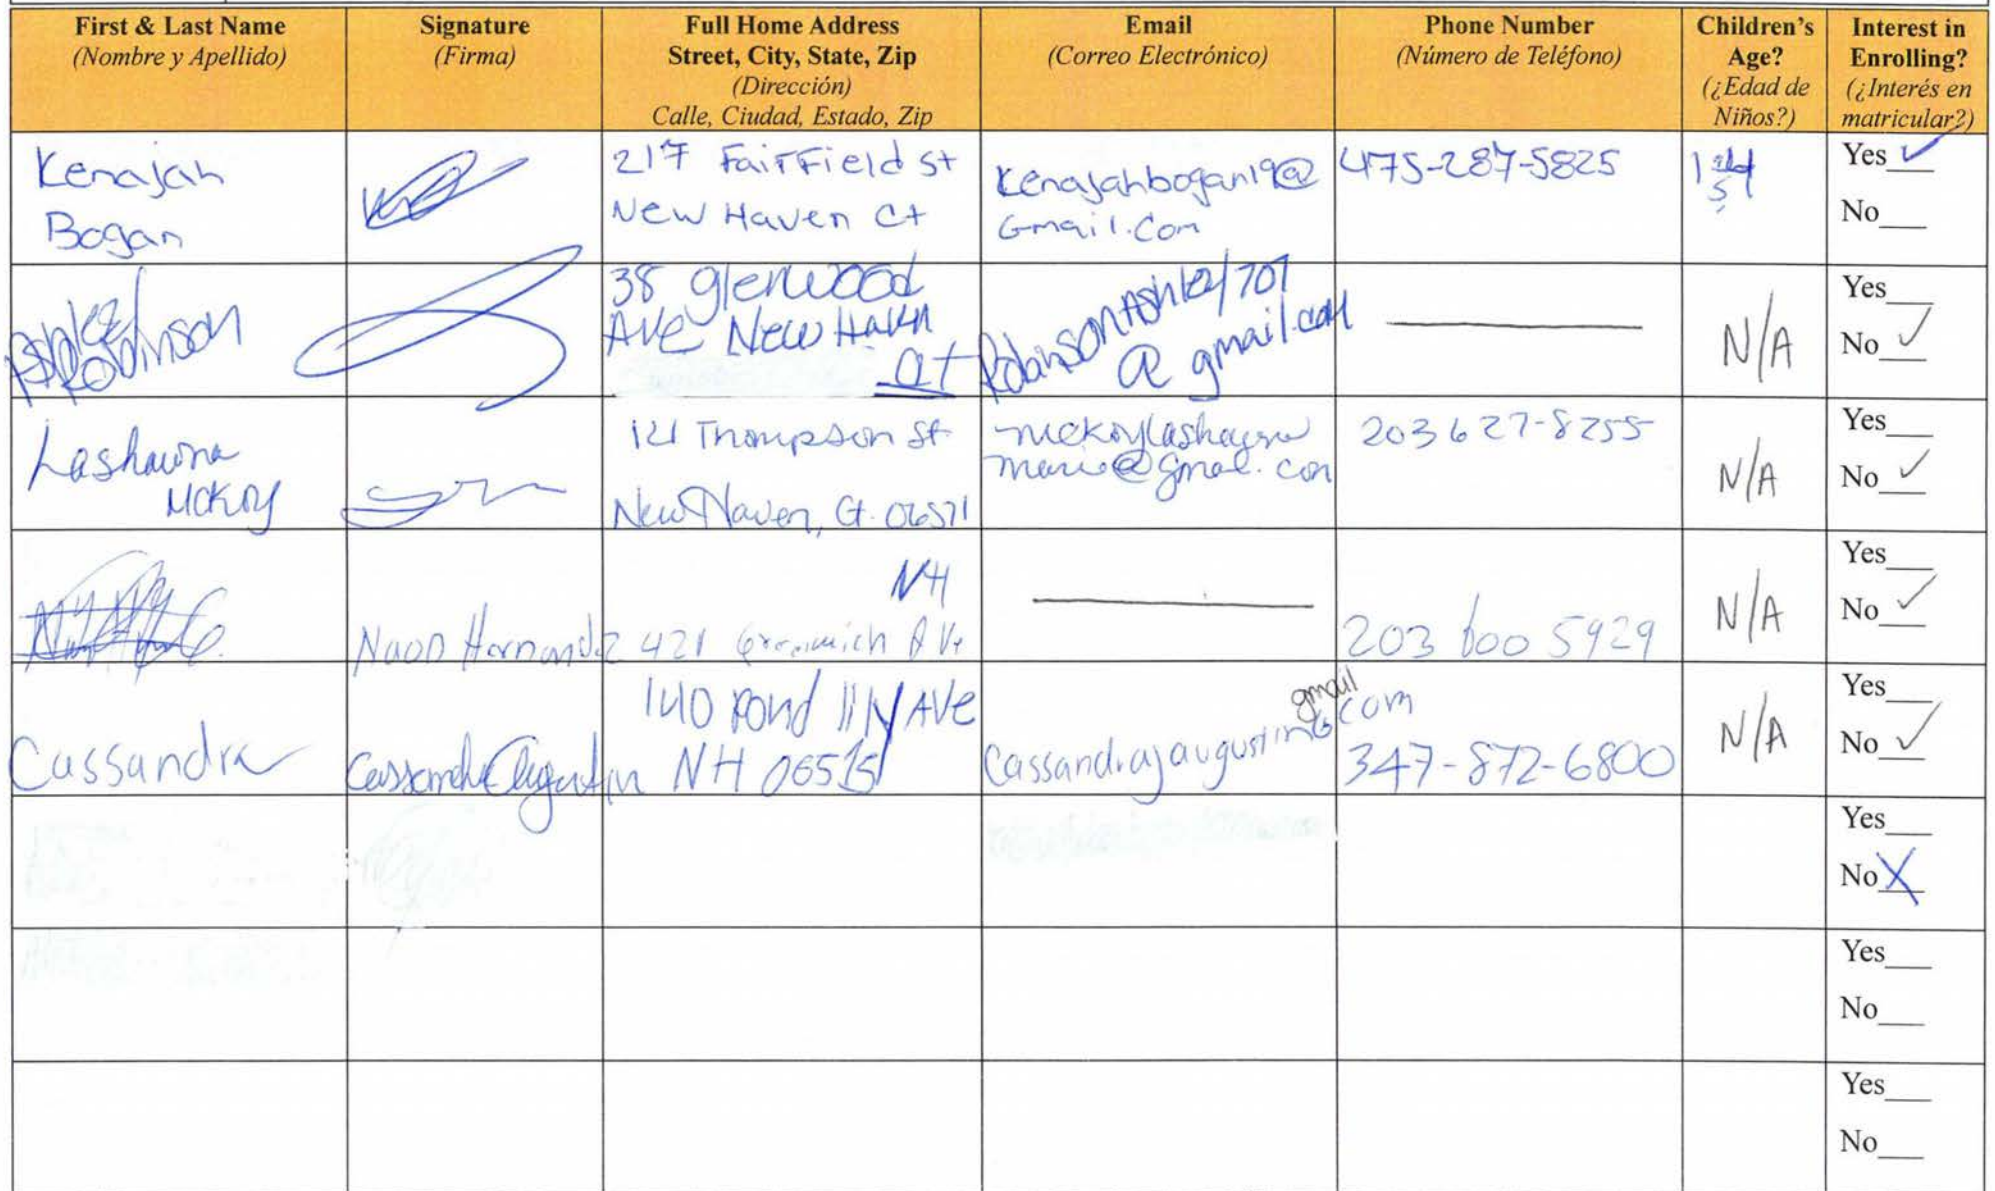 First & Last Name
(Nombre y Apellido)
Signature
(Firma)
Full Home Address
Street, City, State, Zip
(Dirección)
Calle, Ciudad, Estado, Zip
Email
(Correo Electrónico)
Phone Number
(Número de Teléfono)
Children's
Age?
(¿Edad de
Niños?)
Interest in
Enrolling?
(¿Interés en
matricular?)
Kenajah
Bogan
217 Fairfield St
New Haven Ct
Kenajahbogan19@
Gmail.Com
475-287-5825
Yes
No
Ashley
Robinson
38 glenwood
Ave New Haven
ct
@ gmail.com
N/A
Yes
No
Lashawna
McKoy
121 Thompson St
New Haven, Ct. 06571
203 627-8255
N/A
Yes
No
NH
421 Greenwich Ave
203 600 5929
N/A
Yes
No
Cassandra
Cassandra Augustin
140 Pond lily Ave
NH 06515
gmail
com
347-872-6800
N/A
Yes
No
Yes
No X
Yes
No
Yes
No